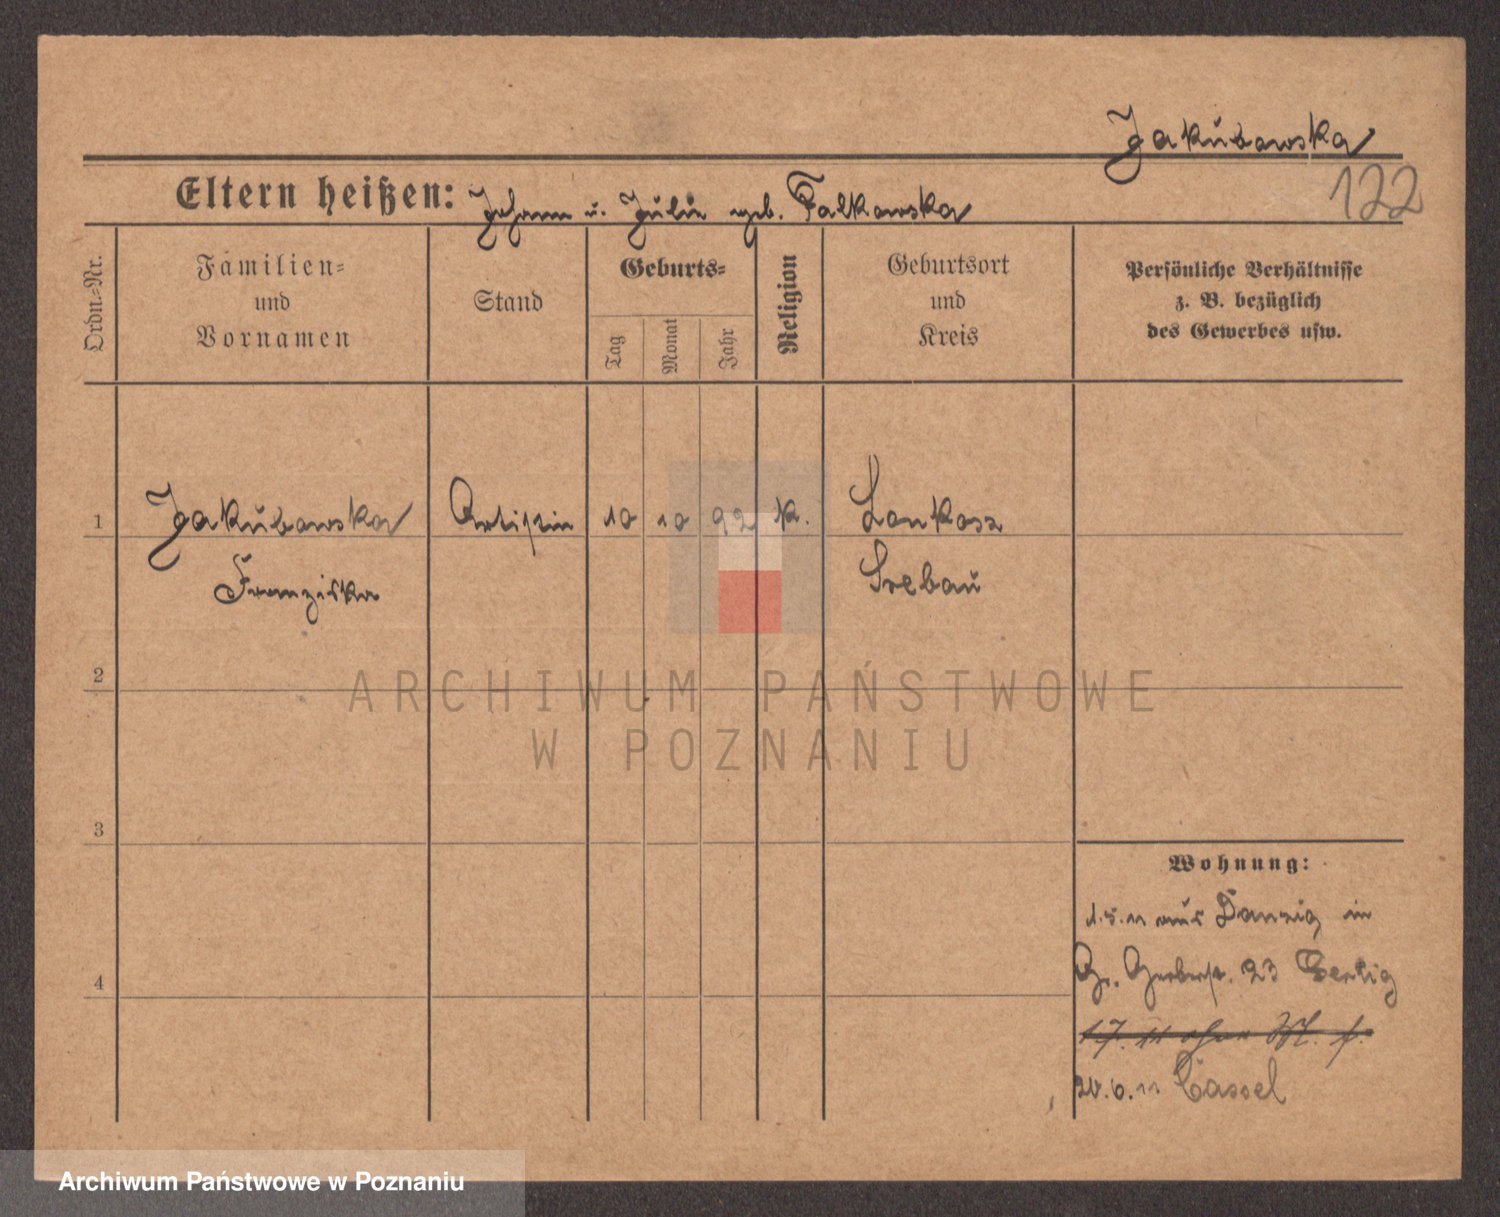 Jakubowska
122
Eltern heißen: Johann u. Julie geb. Falkowska
Ordn.-Nr.
Familien-
und
Vornamen
Stand
Geburts-
Tag
Monat
Jahr
Religion
Geburtsort
und
Kreis
Persönliche Verhältnisse
z. B. bezüglich
des Gewerbes usw.
1 Jakubowska Artistin 10 10 92 k. Lonkosz
Franziska Loebau
2
ARCHIWUM PAŃSTWOWE
W POZNANIU
3
Wohnung:
1.5.11 aus Danzig in
Gr. Gerberst. 23
4
17. 11 ohne
20.6.11 Cassel
Archiwum Państwowe w Poznaniu